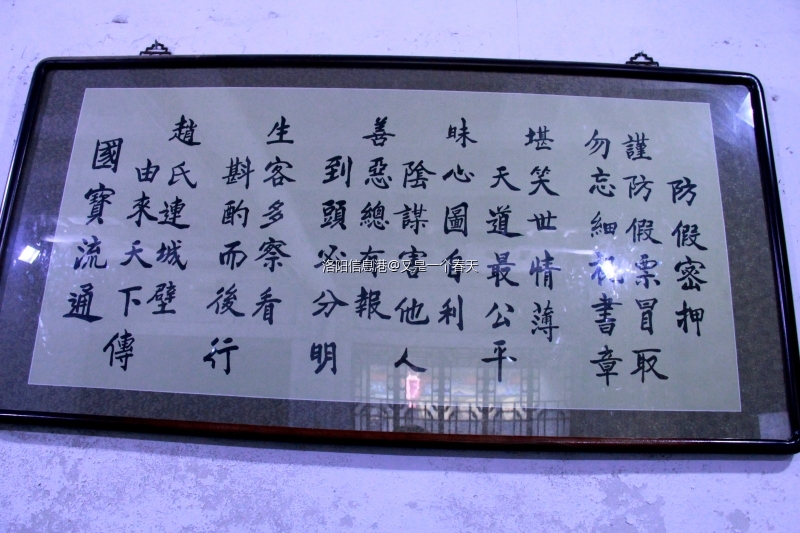 防假密押
謹防假票冒取
勿忘細視書章
堪笑世情薄
天道最公平
昧心圖自利
陰謀害他人
善惡總有報
到頭必分明
生客多察看
斟酌而後行
趙氏連城壁
由來天下傳
國寶流通
洛阳信息港@又是一个春天